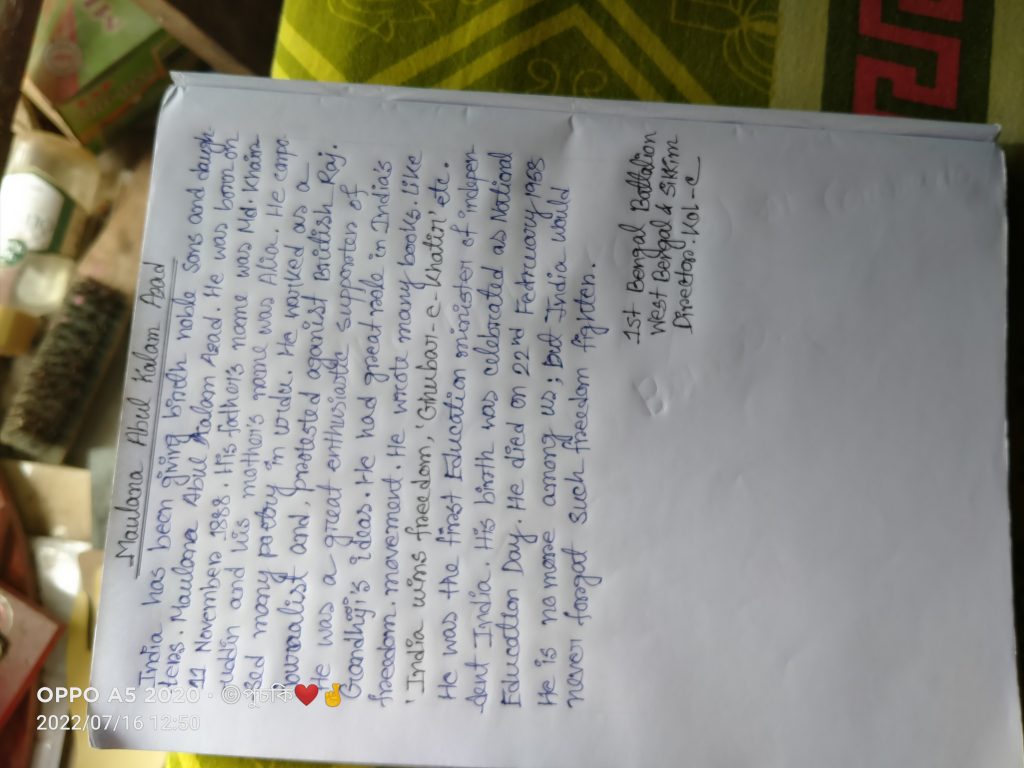 Maulana Abul Kalam Azad
India has been giving birth noble Sons and daugh
ters. Maulana Abul Kalam Azad. He was born on
11 November 1888. His father's name was Md. Khaira
uddin and his mother's name was Alia. He compo
sed many poetry in urdu. He worked as a
journalist and, protested against British Raj.
He was a great enthusiastic supporters of
Gandhiji's ideas. He had great role in India's
freedom movement. He wrote many books. Like
'India wins freedom, 'Ghubar-e-Khatir' etc.
He was the first Education minister of indepen
dent India. His birth was celebrated as National
Education Day. He died on 22nd February, 1958
He is no more among us; But India would
never forgat such freedom fighter.
1st Bengal Battalion
West Bengal & Sikkim
Director. Kol-C
OPPO A5 2020 · ©
2022/07/16 12:50